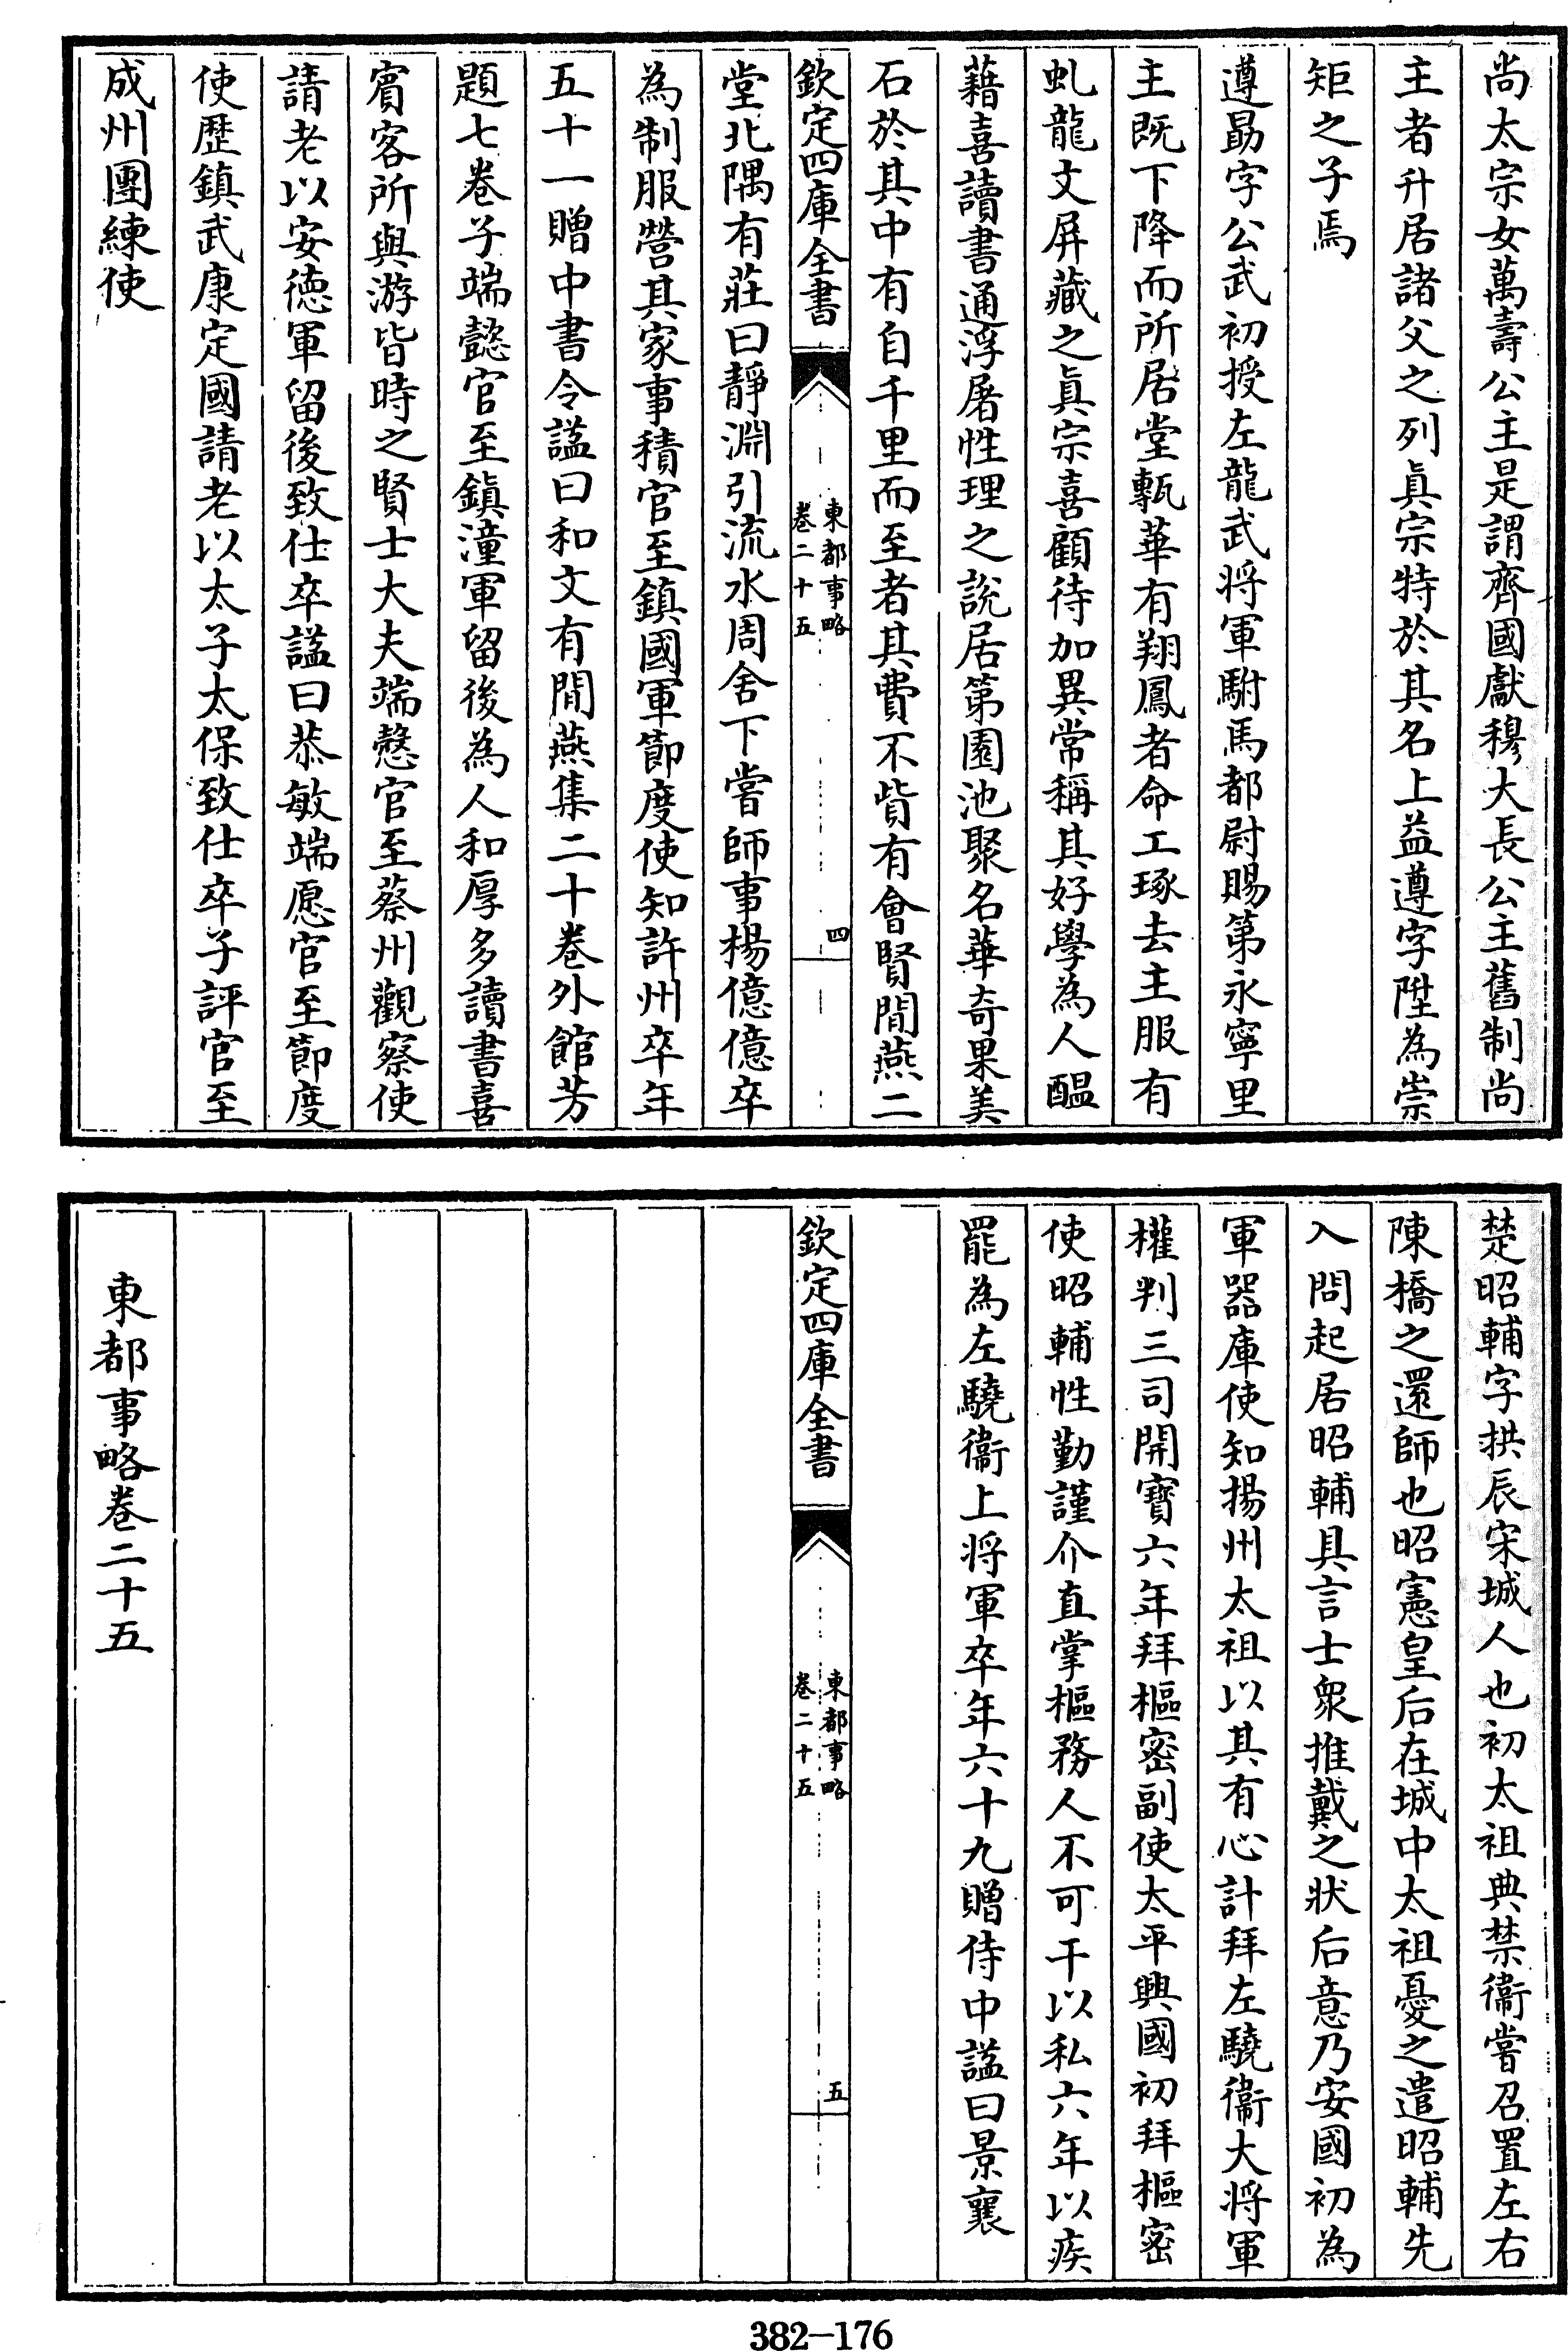 尚太宗女萬壽公主是謂齊國獻穆大長公主舊制尚
主者升居諸父之列眞宗特於其名上益遵字陞為崇
矩之子焉
遵勗字公武初授左龍武將軍駙馬都尉賜第永寧里
主既下降而所居堂甎華有翔鳳者命工琢去主服有
虬龍文屏藏之眞宗喜顧待加異常稱其好學為人醞
藉喜讀書通浮屠性理之說居第園池聚名華奇果美
石於其中有自千里而至者其費不貲有會賢閒燕二
欽定四庫全書
東都事略
卷二十五
四
堂北隅有莊曰靜淵引流水周舍下嘗師事楊億億卒
為制服營其家事積官至鎮國軍節度使知許州卒年
五十一贈中書令謚曰和文有閒燕集二十卷外館芳
題七卷子端懿官至鎮潼軍留後為人和厚多讀書喜
賓客所與游皆時之賢士大夫端慤官至蔡州觀察使
請老以安德軍留後致仕卒謚曰恭敏端愿官至節度
使歷鎮武康定國請老以太子太保致仕卒子評官至
成州團練使
楚昭輔字拱辰宋城人也初太祖典禁衞嘗召置左右
陳橋之還師也昭憲皇后在城中太祖憂之遣昭輔先
入問起居昭輔具言士衆推戴之狀后意乃安國初為
軍器庫使知揚州太祖以其有心計拜左驍衞大將軍
權判三司開寶六年拜樞密副使太平興國初拜樞密
使昭輔性勤謹介直掌樞務人不可干以私六年以疾
罷為左驍衞上將軍卒年六十九贈侍中謚曰景襄
欽定四庫全書
東都事略
卷二十五
五
東都事略卷二十五
382-176